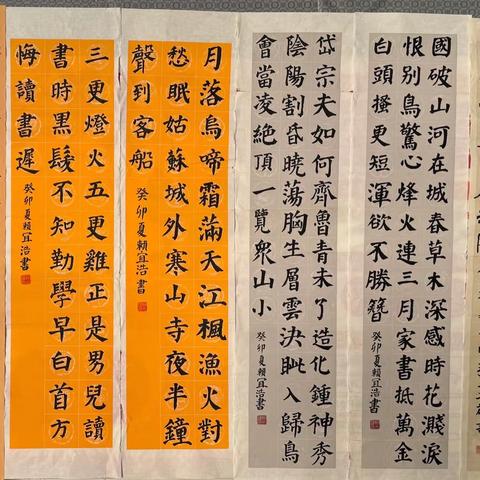 國破山河在城春草木深感時花濺淚
恨別鳥驚心烽火連三月家書抵萬金
白頭搔更短渾欲不勝簪
癸卯夏賴宜浩書
岱宗夫如何齊魯青未了造化鍾神秀
陰陽割昏曉蕩胸生層雲決眥入歸鳥
會當凌絕頂一覽眾山小
癸卯夏賴宜浩書
月落烏啼霜滿天江楓漁火對
愁眠姑蘇城外寒山寺夜半鐘
聲到客船
癸卯夏賴宜浩書
三更燈火五更雞正是男兒讀
書時黑髮不知勤學早白首方
悔讀書遲
癸卯夏賴宜浩書